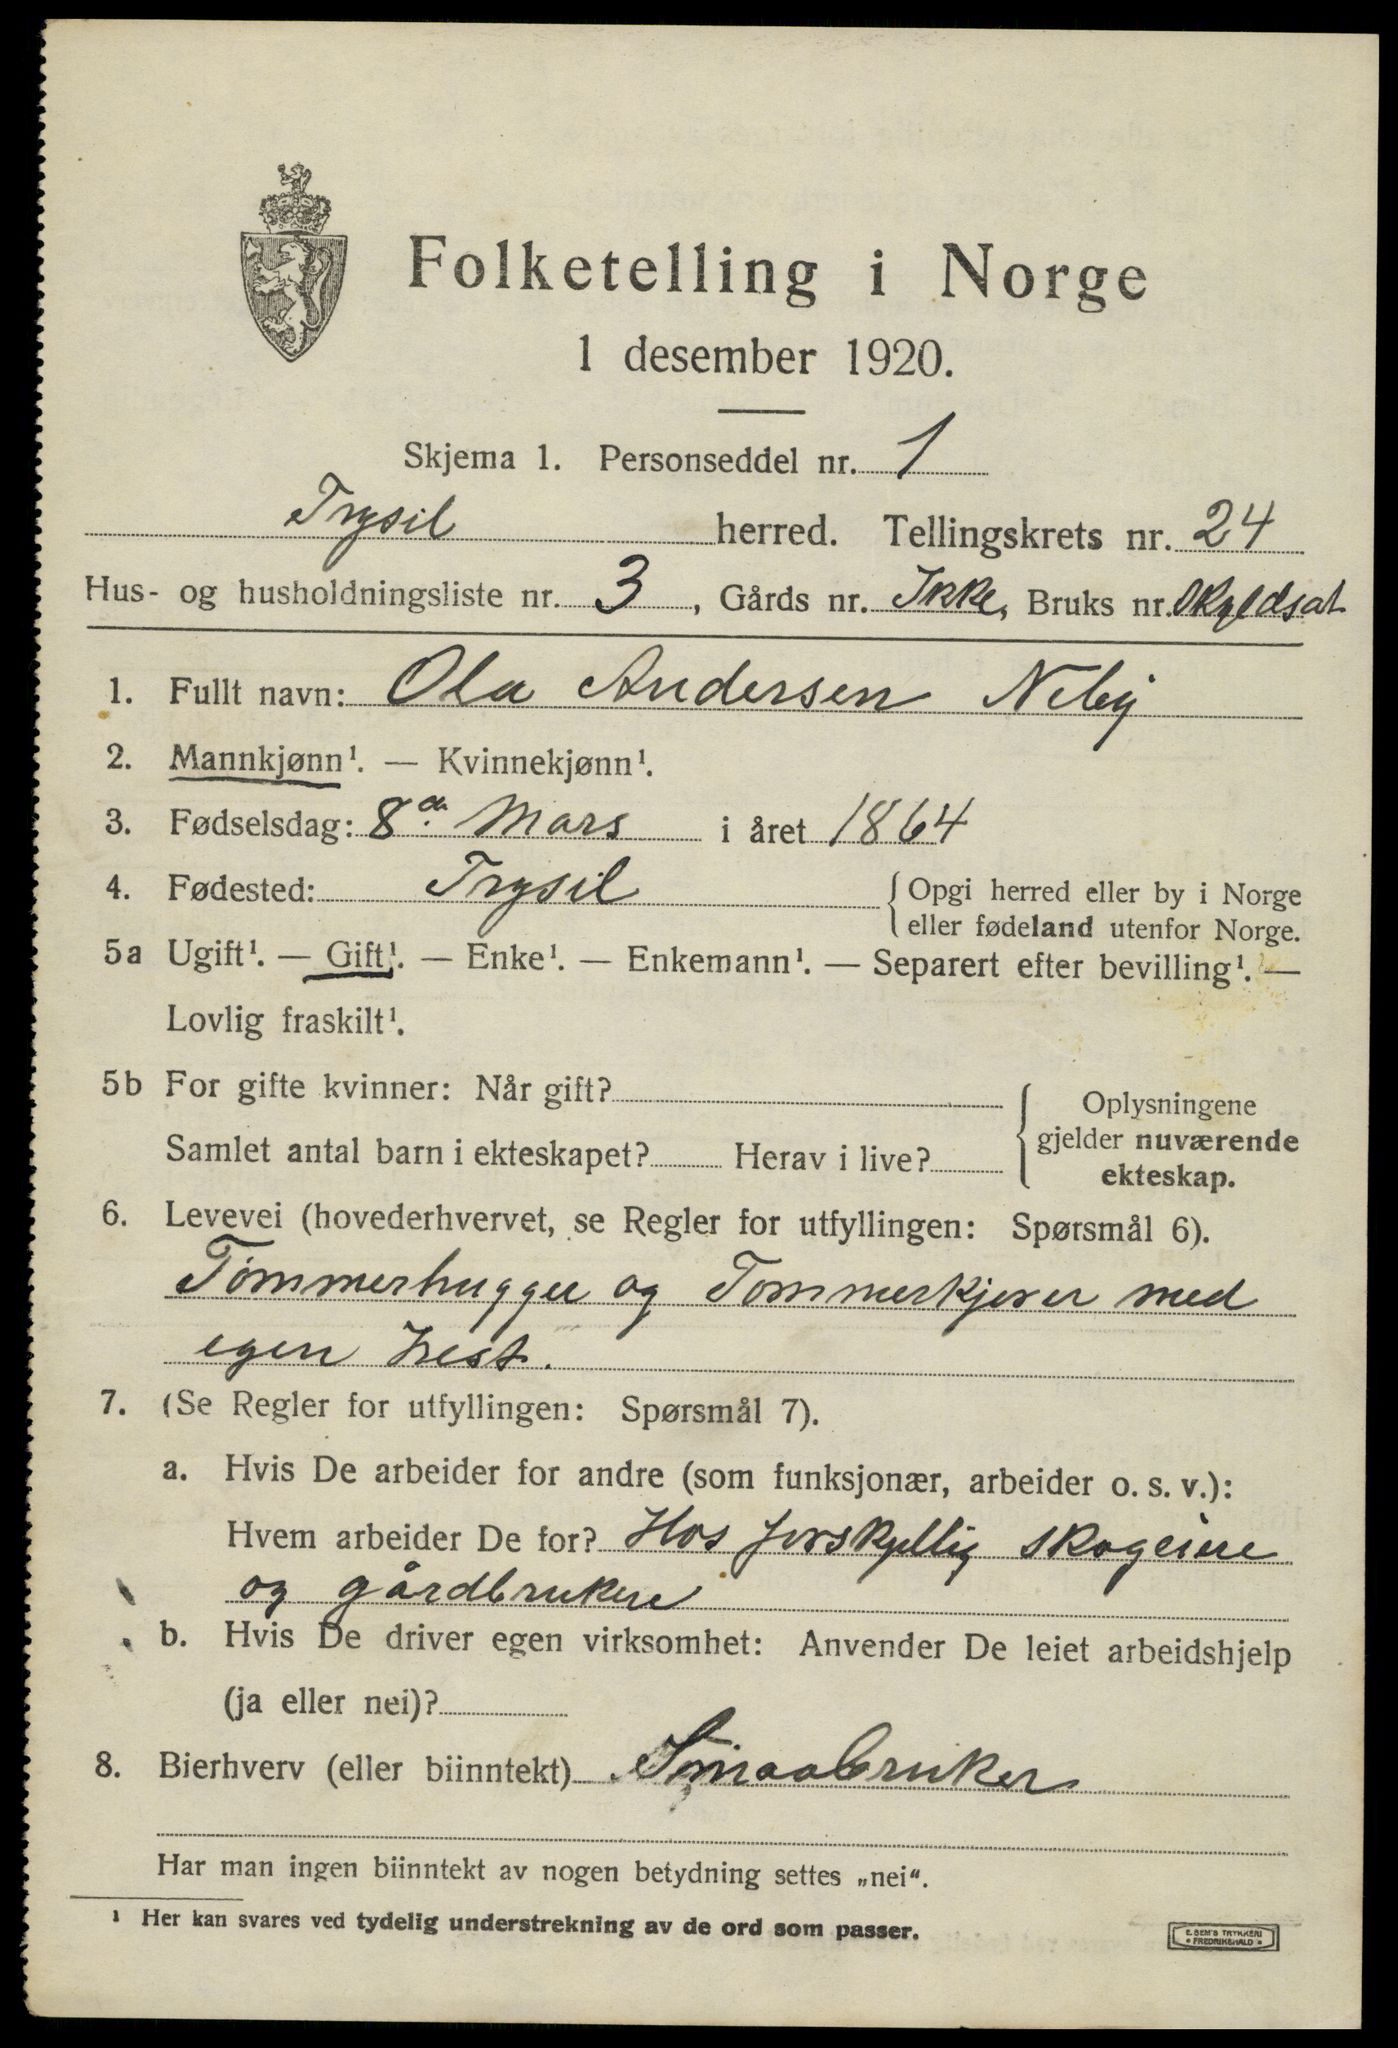 Folketelling i Norge
1 desember 1920.
Skjema 1. Personseddel nr. 1
Trysil herred. Tellingskrets nr. 24
Hus- og husholdningsliste nr. 3, Gårds nr. Ikke, Bruks nr. Skyldsat
1. Fullt navn: Ola Andersen Neby
2. Mannkjønn¹. — Kvinnekjønn¹.
3. Fødselsdag: 8de Mars i året 1864
4. Fødested: Trysil { Opgi herred eller by i Norge
eller fødeland utenfor Norge.
5a Ugift¹. — Gift¹. — Enke¹. — Enkemann¹. — Separert efter bevilling¹. —
Lovlig fraskilt¹.
5b For gifte kvinner: Når gift? { Oplysningene
gjelder nuværende
ekteskap.
Samlet antal barn i ekteskapet? Herav i live?
6. Levevei (hovederhvervet, se Regler for utfyllingen: Spørsmål 6).
Tømmerhugger og Tømmerkjører med
egen Hest.
7. (Se Regler for utfyllingen: Spørsmål 7).
a. Hvis De arbeider for andre (som funksjonær, arbeider o. s. v.):
Hvem arbeider De for? Hos forskjellig skogeiere
og gårdbrukere
b. Hvis De driver egen virksomhet: Anvender De leiet arbeidshjelp
(ja eller nei)?
8. Bierhverv (eller biinntekt) Smaabruker
Har man ingen biinntekt av nogen betydning settes „nei“.
¹ Her kan svares ved tydelig understrekning av de ord som passer.
E. SEM'S TRYKKERI
FREDRIKSHALD